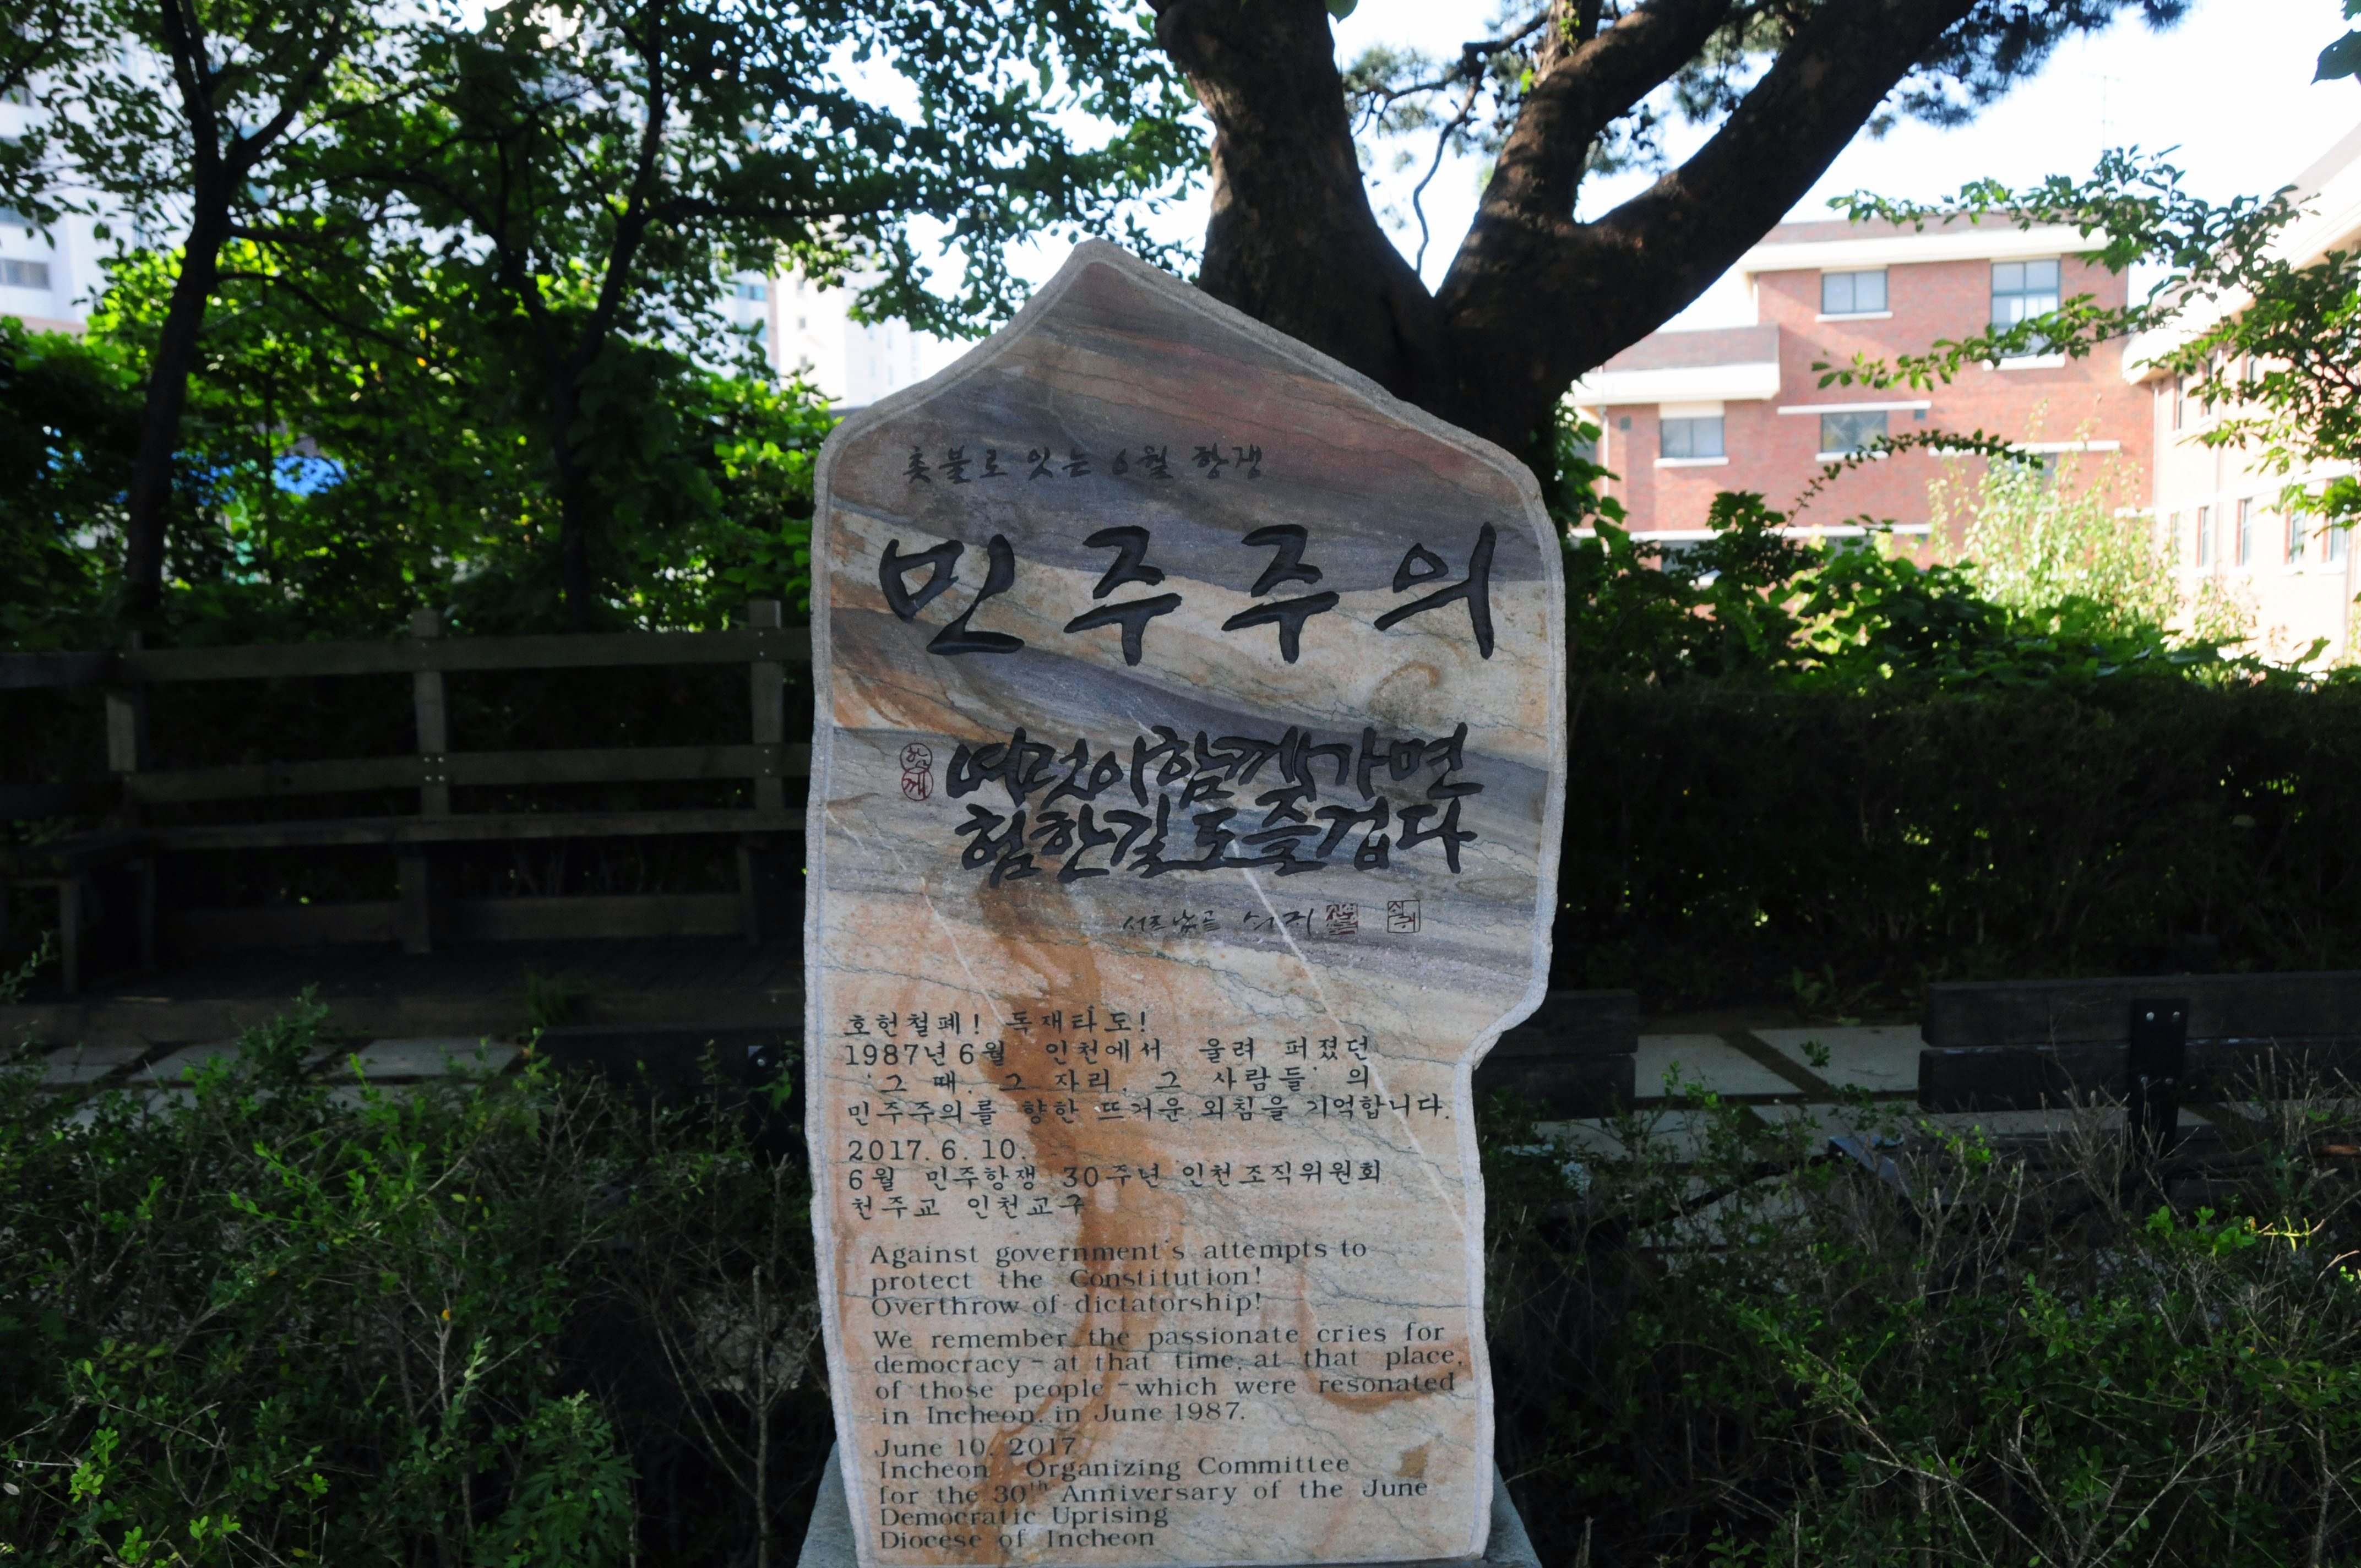 촛불로 잇는 6월 항쟁
민주주의
여럿이함께가면
험한길도즐겁다
함께
호헌철폐! 독재타도!
1987년 6월 인천에서 울려 퍼졌던
'그 때, 그 자리, 그 사람들' 의
민주주의를 향한 뜨거운 외침을 기억합니다.
2017. 6. 10.
6월 민주항쟁 30주년 인천조직위원회
천주교 인천교구
Against government's attempts to
protect the Constitution!
Overthrow of dictatorship!
We remember the passionate cries for
democracy - at that time, at that place,
of those people - which were resonated
in Incheon, in June 1987.
June 10, 2017
Incheon Organizing Committee
for the 30th Anniversary of the June
Democratic Uprising
Diocese of Incheon